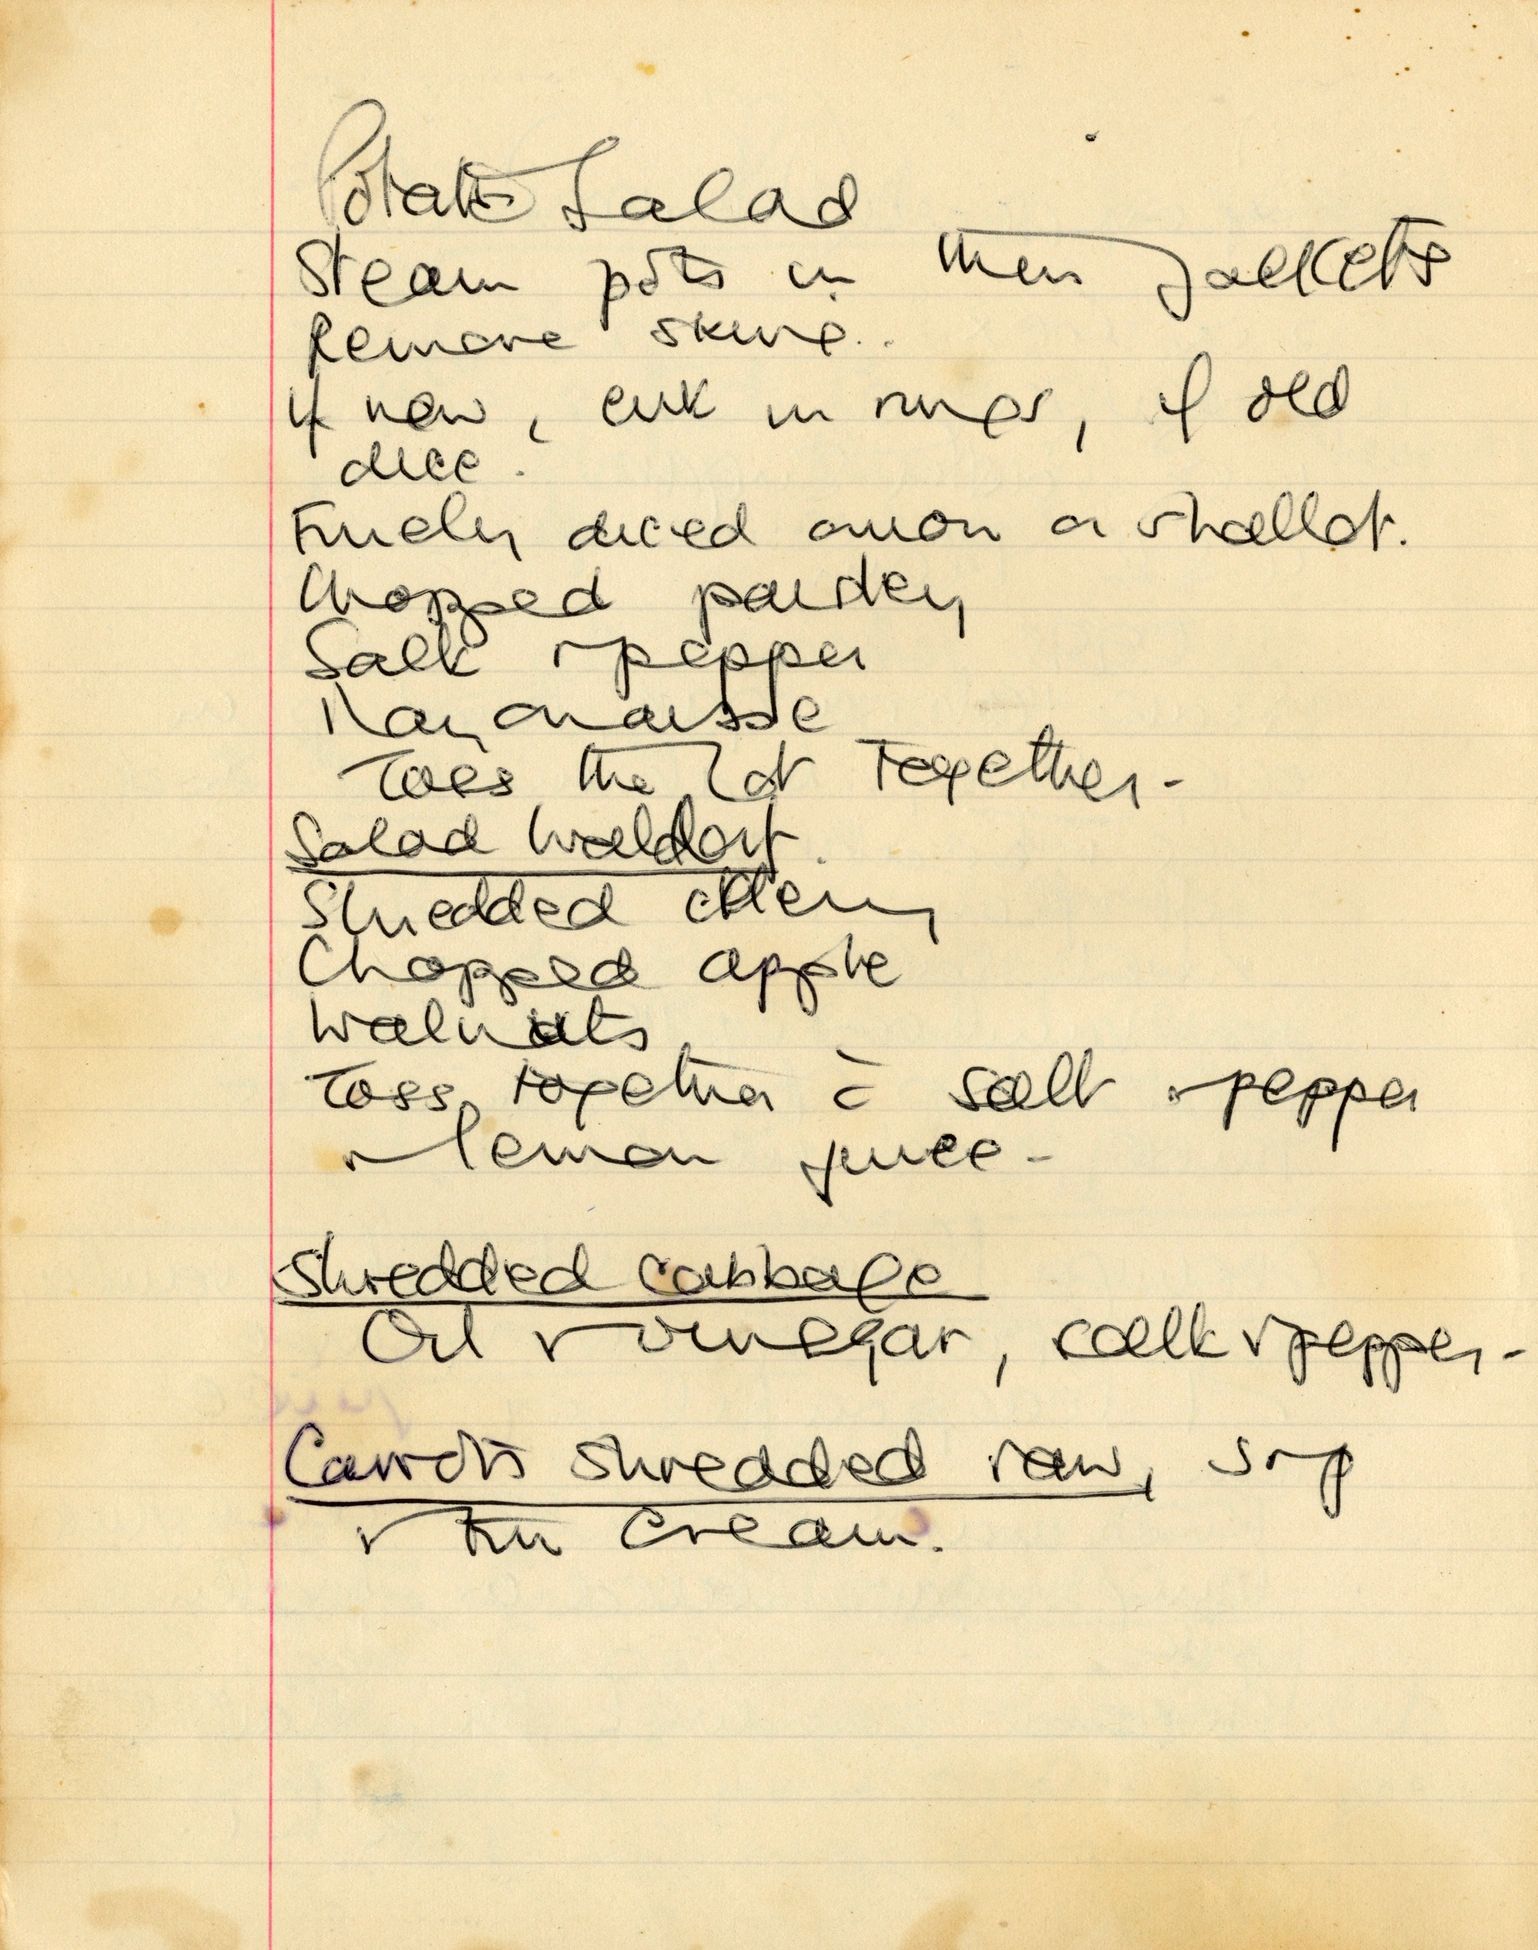 Potato Salad
Steam pots in their jackets
Remove skins.
if new, cut in rings, if old
dice.
Finely diced onion or shallot.
Chopped parsley
Salt & pepper
Mayonaisse
Toss the lot together -
Salad Waldorf.
Shredded celery
Chopped apple
Walnuts
Toss together c̄ salt & pepper
& lemon juice -
Shredded cabbage
Oil & vinegar, salt & pepper -
Carrots shredded raw, s & p
& tin cream.